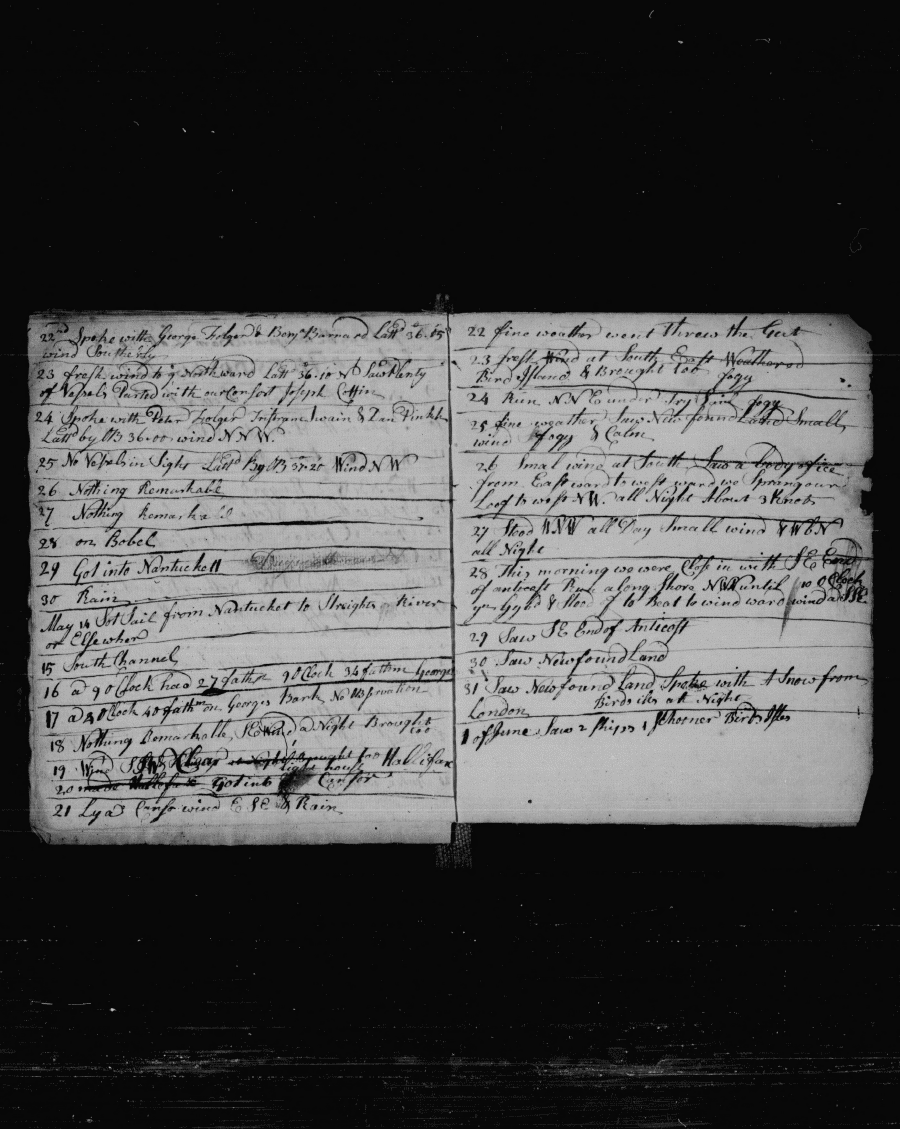 22nd Spoke with George Folger & Benjn Barnard Lattd 36-65
wind Southerly
23 fresh wind to ye Northward Lattd 36-10 N Saw Plenty
of Vessels Parted with our Consort Joseph Coffin
24 Spoke with Peter Folger Tristram Swain & Zac Pinkh
Lattd by OB 36-00 wind N N W.
25 No Vessels in Sight Lattd By OB 37-20 Wind N W
26 Nothing Remarkable
27 Nothing Remarkable
28 on Bobel
29 Got into Nantuckett
30 Rain
May 14 Sot Sail from Nantucket to Streights or River
or Elsewher
15 South Channel
16 at 9 O Clock had 27 fathm 9 O Clock 34 fathm Georges
17 at 4 O Clock 40 fathm on Georges Bank No Observation
18 Nothing Remarkable SE Wind at Night Brought
too
19 Wind SSW & Clear
light house too Hallifax
20 made Hallefax Got into Canso
21 Lyad Canso wind E SE & Rain
22 fine weather went threw the Gut
23 fresh Wind at South East Weathered
Bird Island & Brought too fogy
24 Run N N E under Try Sail fogy
25 fine weather Saw Newfound Land Small
wind fogy & Calm
26 Smal wind at South Saw a body of ice
from Eastward to westward we Sprang our
Loof to west NW all Night About 3 Knots
27 Stood WNW all Day Small wind & WBN
all Night
28 This morning we were Close in with SE End
of anticost Run along Shore NW until 10 O Clock
& Stood of to Beat to windward wind at SSE
29 Saw SE End of Anticost
30 Saw Newfound Land
31 Saw Newfound Land Spoke with A Snow from
London Birds iles at Night
1 of June Saw 2 Ships 1 Schooner Birds Iles